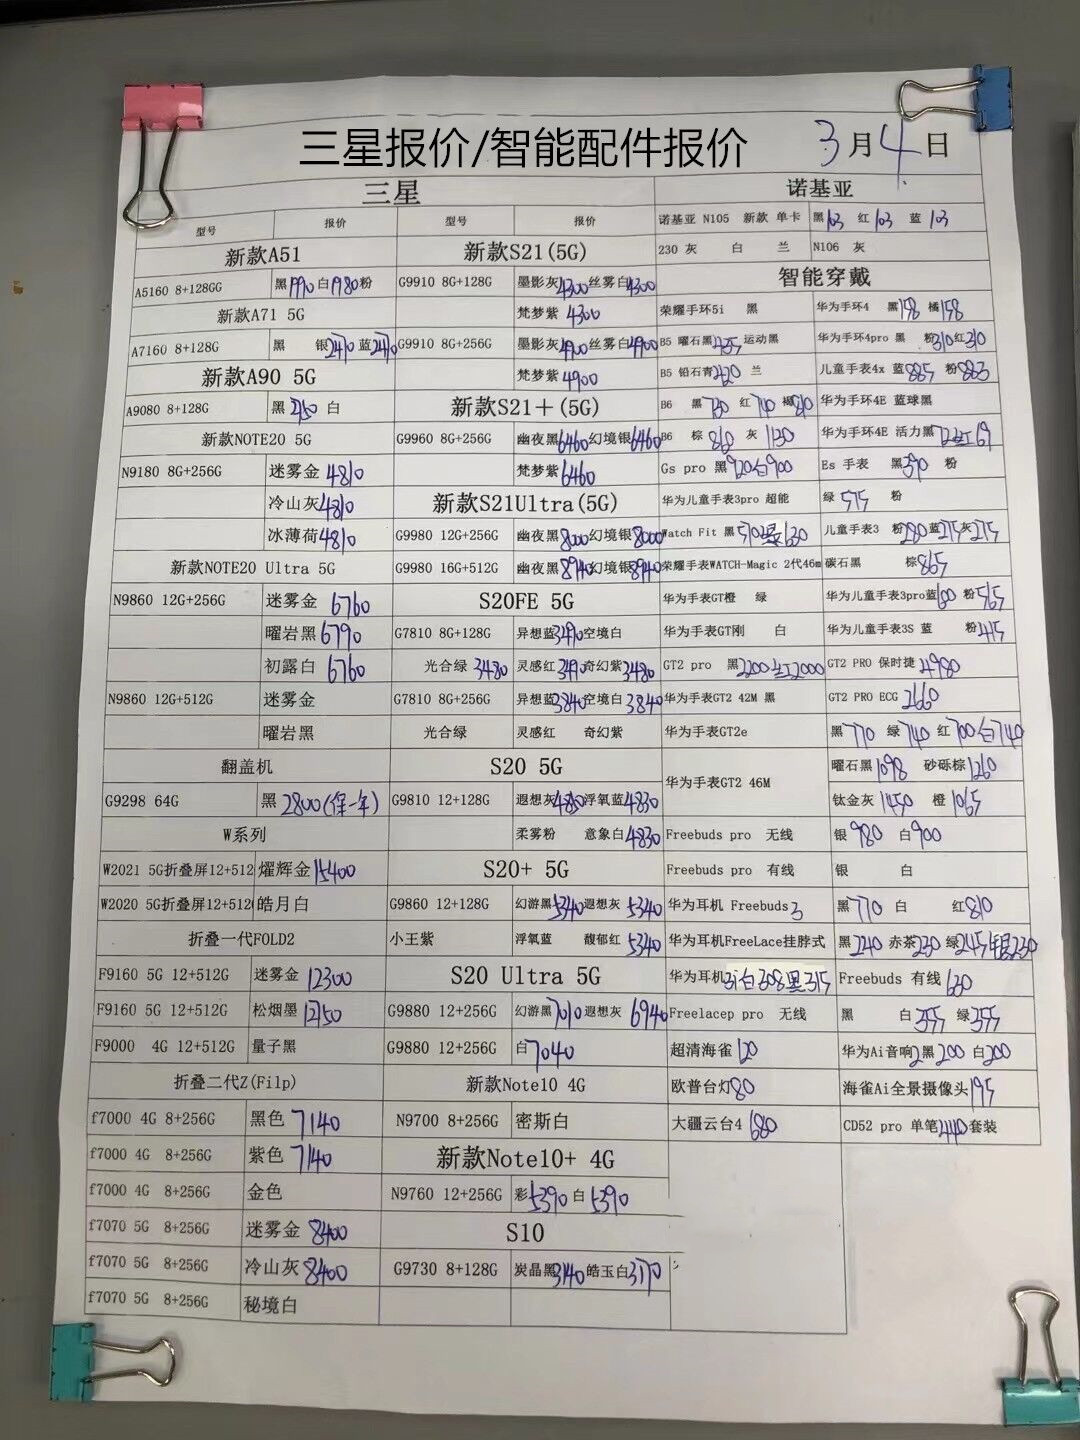 三星报价/智能配件报价 3月4日
三星 诺基亚
型号 报价 型号 报价 诺基亚 N105 新款 单卡 黑103 红103 蓝103
新款A51 新款S21(5G) 230 灰 白 兰 N106 灰
A5160 8+128GG 黑1990白1980粉 G9910 8G+128G 墨影灰4300丝雾白4300 智能穿戴
新款A71 5G 梵梦紫 4300 荣耀手环5i 黑 华为手环4 黑158 橘158
A7160 8+128G 黑 银2470蓝2470 G9910 8G+256G 墨影灰4900丝雾白4900 B5 曜石黑 运动黑 华为手环4pro 黑 粉310红310
新款A90 5G 梵梦紫 4900 B5 铅石青 兰 儿童手表4x 蓝885 粉883
A9080 8+128G 黑 白 新款S21+(5G) B6 黑730 红740 褐810 华为手环4E 蓝球黑
新款NOTE20 5G G9960 8G+256G 幽夜黑6460幻境银6460 B6 棕 860 灰 1130 华为手环4E 活力黑
N9180 8G+256G 迷雾金 4810 梵梦紫6460 Gs pro 黑920白900 Es 手表 黑390 粉
冷山灰4810 新款S21Ultra(5G) 华为儿童手表3pro 超能 绿 575 粉
冰薄荷4810 G9980 12G+256G 幽夜黑8000幻境银8000 Watch Fit 黑570绿630 儿童手表3 粉280蓝275灰275
新款NOTE20 Ultra 5G G9980 16G+512G 幽夜黑8940幻境银8940 荣耀手表WATCH-Magic 2代46m 碳石黑 棕865
N9860 12G+256G 迷雾金 6760 S20FE 5G 华为手表GT橙 绿 华为儿童手表3pro蓝600 粉565
曜岩黑6790 G7810 8G+128G 异想蓝3490空境白 华为手表GT刚 白 华为儿童手表3S 蓝 粉415
初露白 6760 光合绿 3480 灵感红3490奇幻紫3480 GT2 pro 黑2200红2000 GT2 PRO 保时捷4980
N9860 12G+512G 迷雾金 G7810 8G+256G 异想蓝3840空境白3840 华为手表GT2 42M 黑 GT2 PRO ECG 2660
曜岩黑 光合绿 灵感红 奇幻紫 华为手表GT2e 黑770 绿740 红700白740
翻盖机 S20 5G 华为手表GT2 46M 曜石黑1098 砂砾棕1260
G9298 64G 黑 2800(保一年) G9810 12+128G 遐想灰4830浮氧蓝4830 钛金灰 1450 橙 1065
W系列 柔雾粉 意象白4830 Freebuds pro 无线 银 980 白900
W2021 5G折叠屏12+512 燿辉金15400 S20+ 5G Freebuds pro 有线 银 白
W2020 5G折叠屏12+512 皓月白 G9860 12+128G 幻游黑5340遐想灰 5340 华为耳机 Freebuds3 黑770 白 红810
折叠一代FOLD2 小王紫 浮氧蓝 馥郁红 5340 华为耳机FreeLace挂脖式 黑240 赤茶230 绿245银230
F9160 5G 12+512G 迷雾金 12300 S20 Ultra 5G 华为耳机3i白308黑315 Freebuds 有线 630
F9160 5G 12+512G 松烟墨 12150 G9880 12+256G 幻游黑7010遐想灰 6940 Freelacep pro 无线 黑 白355 绿355
F9000 4G 12+512G 量子黑 G9880 12+256G 白7040 超清海雀 120 华为Ai音响2黑200 白200
折叠二代Z(Filp) 新款Note10 4G 欧普台灯80 海雀Ai全景摄像头195
f7000 4G 8+256G 黑色 7140 N9700 8+256G 密斯白 大疆云台4 680 CD52 pro 单笔440套装
f7000 4G 8+256G 紫色 7140 新款Note10+ 4G
f7000 4G 8+256G 金色 N9760 12+256G 彩5390白5390
f7070 5G 8+256G 迷雾金 8400 S10
f7070 5G 8+256G 冷山灰8400 G9730 8+128G 炭晶黑3140皓玉白3170
f7070 5G 8+256G 秘境白